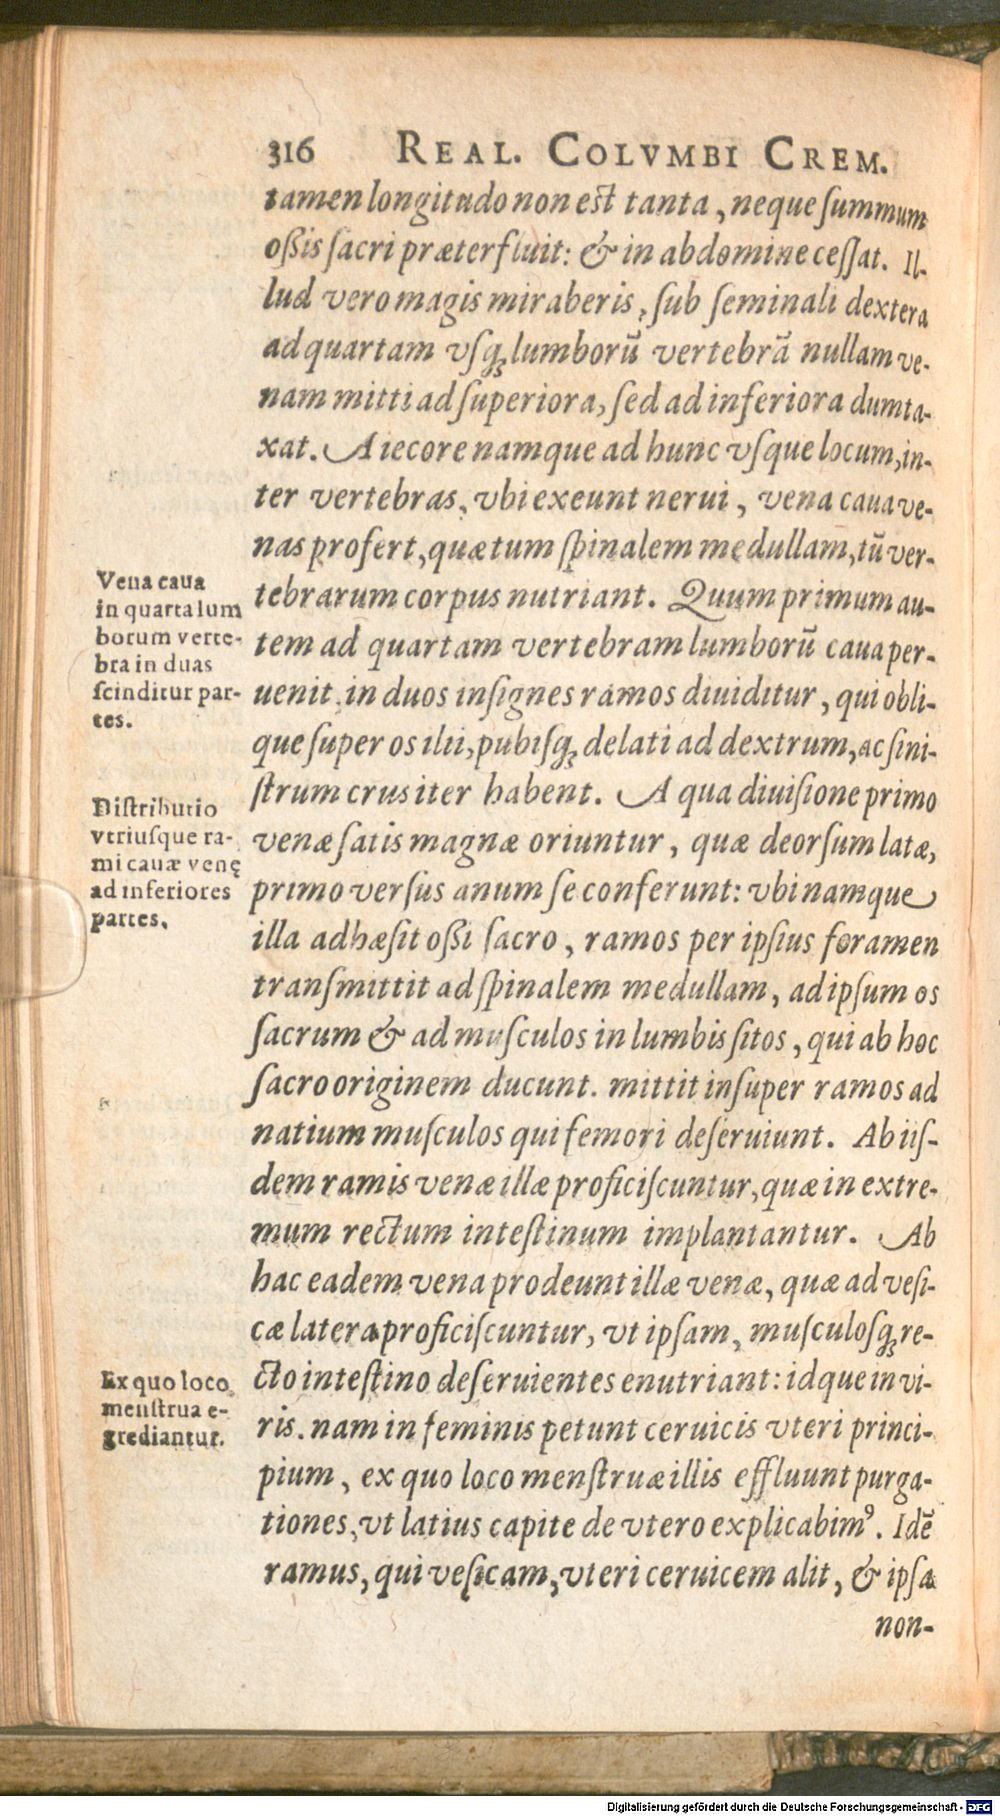 316 REAL. COLVMBI CREM.
tamen longitudo non est tanta, neque summum
oßis sacri præterfluit: & in abdomine cessat. Il-
lud vero magis miraberis, sub seminali dextera
ad quartam vsq; lumborū vertebrā nullam ve-
nam mitti ad superiora, sed ad inferiora dumta-
xat. A iecore namque ad hunc vsque locum, in-
ter vertebras, vbi exeunt nerui, vena caua ve-
nas profert, quæ tum spinalem medullam, tū ver-
tebrarum corpus nutriant. Quum primum au-
tem ad quartam vertebram lumborū caua per-
uenit, in duos insignes ramos diuiditur, qui obli-
que super os ilii, pubisq; delati ad dextrum, ac sini-
strum crus iter habent. A qua diuisione primo
venæ satis magnæ oriuntur, quæ deorsum latæ,
primo versus anum se conferunt: vbi namque
illa adhæsit oßi sacro, ramos per ipsius foramen
transmittit ad spinalem medullam, ad ipsum os
sacrum & ad musculos in lumbis sitos, qui ab hoc
sacro originem ducunt. mittit insuper ramos ad
natium musculos qui femori deseruiunt. Ab iis-
dem ramis venæ illæ proficiscuntur, quæ in extre-
mum rectum intestinum implantantur. Ab
hac eadem vena prodeunt illæ venæ, quæ ad vesi-
cæ latera proficiscuntur, vt ipsam, musculosq; re-
cto intestino deseruientes enutriant: idque in vi-
ris. nam in feminis petunt ceruicis vteri princi-
pium, ex quo loco menstruæ illis effluunt purga-
tiones, vt latius capite de vtero explicabimꝰ. Idē
ramus, qui vesicam, vteri ceruicem alit, & ipsa
non-
Vena caua
in quarta lum
borum verte-
bra in duas
scinditur par-
tes.
Distributio
vtriusque ra-
mi cauæ venę
ad inferiores
partes.
Ex quo loco
menstrua e-
grediantur.
Digitalisierung gefördert durch die Deutsche Forschungsgemeinschaft - DFG